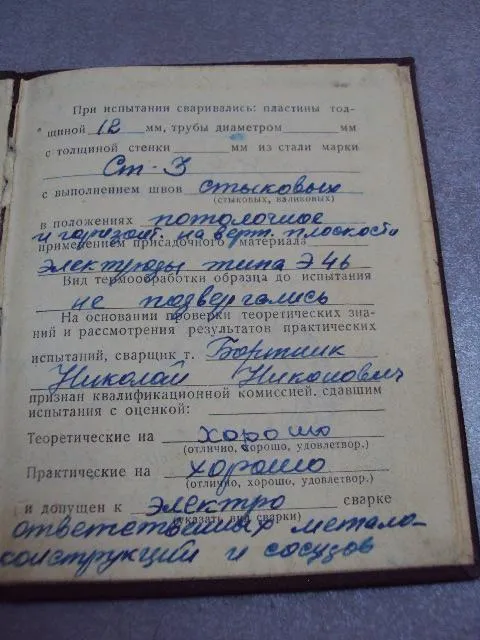 При испытании сваривались: пластины тол-
щиной 12 мм, трубы диаметром мм
с толщиной стенки мм из стали марки
Ст-3
с выполнением швов стыковых
(стыковых, валиковых)
в положениях потолочное
и горизонт. на верт. плоскости
применением присадочного материала
электроды типа Э46
Вид термообработки образца до испытания
не подвергались
На основании проверки теоретических зна-
ний и рассмотрения результатов практических
испытаний, сварщик т. Бортник
Николай Никонович
признан квалификационной комиссией, сдавшим
испытания с оценкой:
Теоретические на хорошо
(отлично, хорошо, удовлетвор.)
Практические на хорошо
(отлично, хорошо, удовлетвор.)
и допущен к электро сварке
(указать вид сварки)
ответственных метало-
конструкций и сосудов